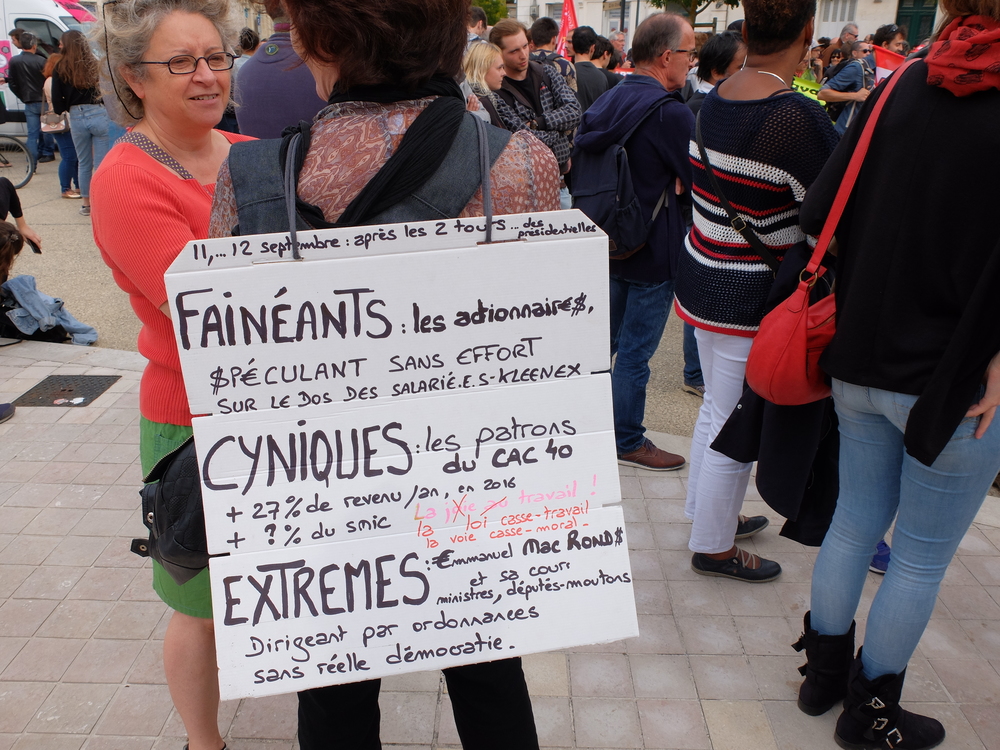 11,... 12 septembre : après les 2 tours ... des présidentielles
FAINÉANTS : les actionnair€$,
$PÉCULANT SANS EFFORT
SUR LE DOS DES SALARIÉ.E.S-KLEENEX
CYNIQUES : les patrons
du CAC 40
+ 27% de revenu /an, en 2016
+ ?% du smic
La joie au travail !
la loi casse-travail
la voie casse-moral.
EXTREMES : €mmanuel Mac ROND$
et sa cour
ministres, députés-moutons
Dirigeant par ordonnances
sans réelle démocratie.